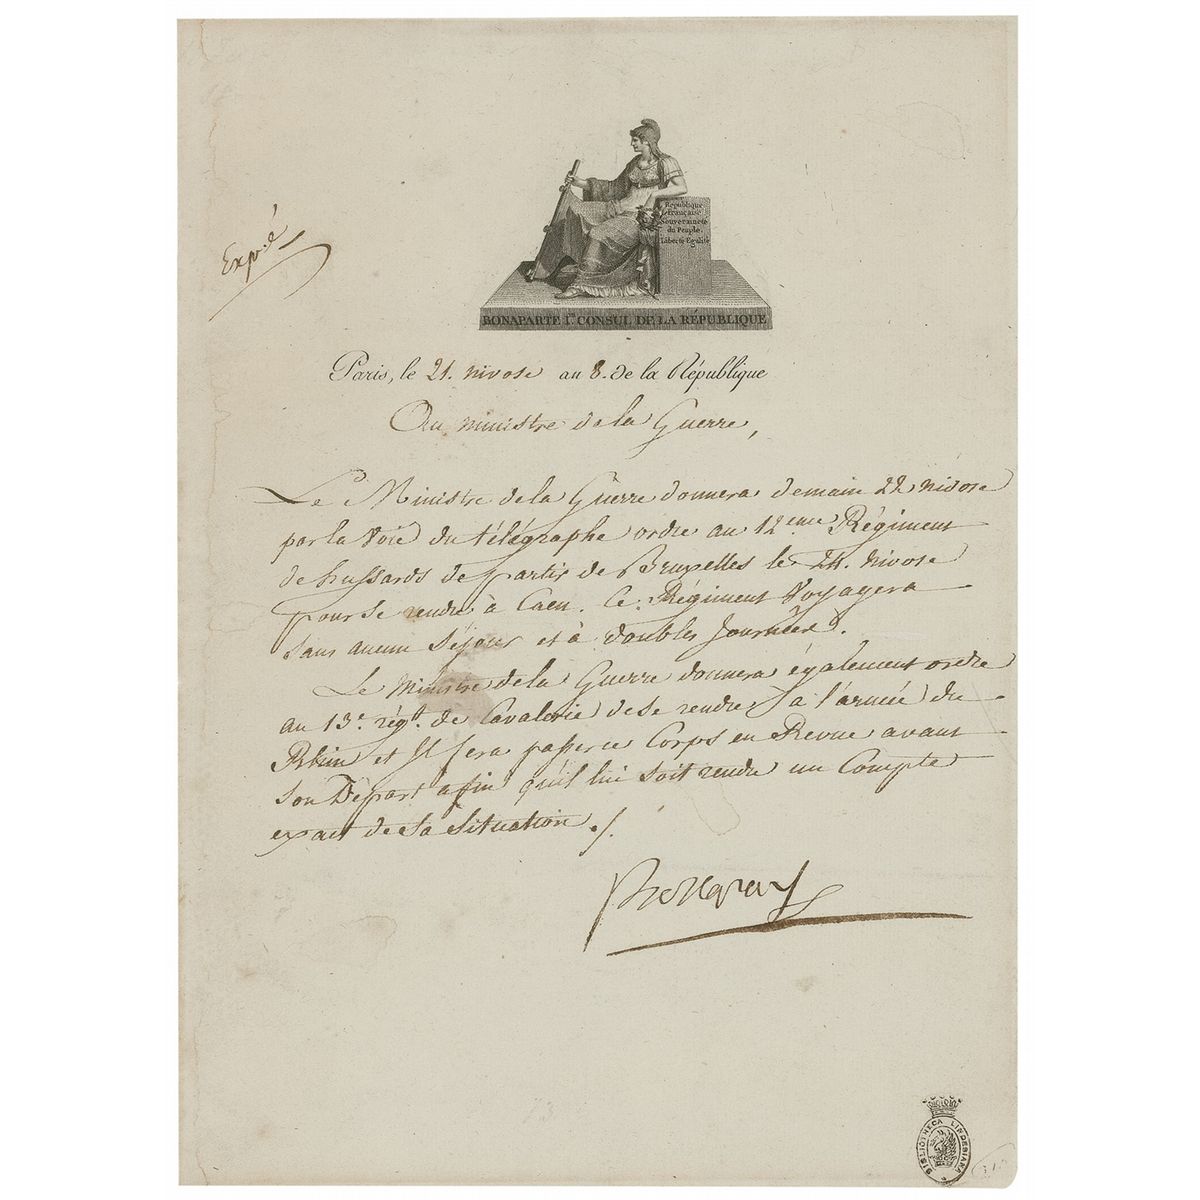 Expié
République
française
Souveraineté
du Peuple.
Liberté Egalité
BONAPARTE Ier. CONSUL DE LA RÉPUBLIQUE
Paris, le 21. nivose an 8. de la République
Au ministre de la Guerre,
Le Ministre de la Guerre donnera demain 22 nivose
par la voie du télégraphe ordre au 12eme Régiment
de hussards de partir de Bruxelles le 24. nivose
pour se rendre à Caen. Ce Régiment Voyagera
sans aucun séjour et à doubles Journées.
Le Ministre de la Guerre donnera également ordre
au 13e. régt. de Cavalerie de se rendre à l'armée du
Rhin et Il fera passer ce Corps en Revue avant
son Départ afin qu'il lui soit rendu un Compte
exact de sa situation ./.
Bonaparte
BIBLIOTHECA LINDESIANA